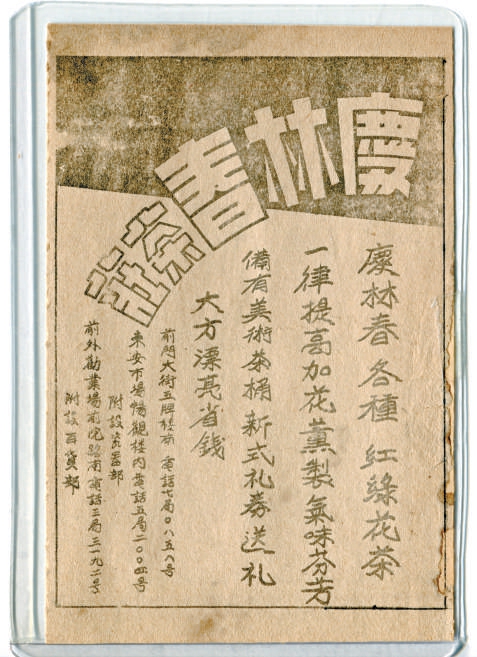 慶林春茶莊
慶林春各種紅綠花茶
一律提高加花薰製氣味芬芳
備有美術茶桶新式礼券送礼
大方漂亮省錢
前門大街五牌楼南 電話七局〇八五八号
東安市場暢觀楼内 電話五局二〇〇四号
附設瓷器部
前外勸業場前院路南 電話三局三一九二号
附設百貨部